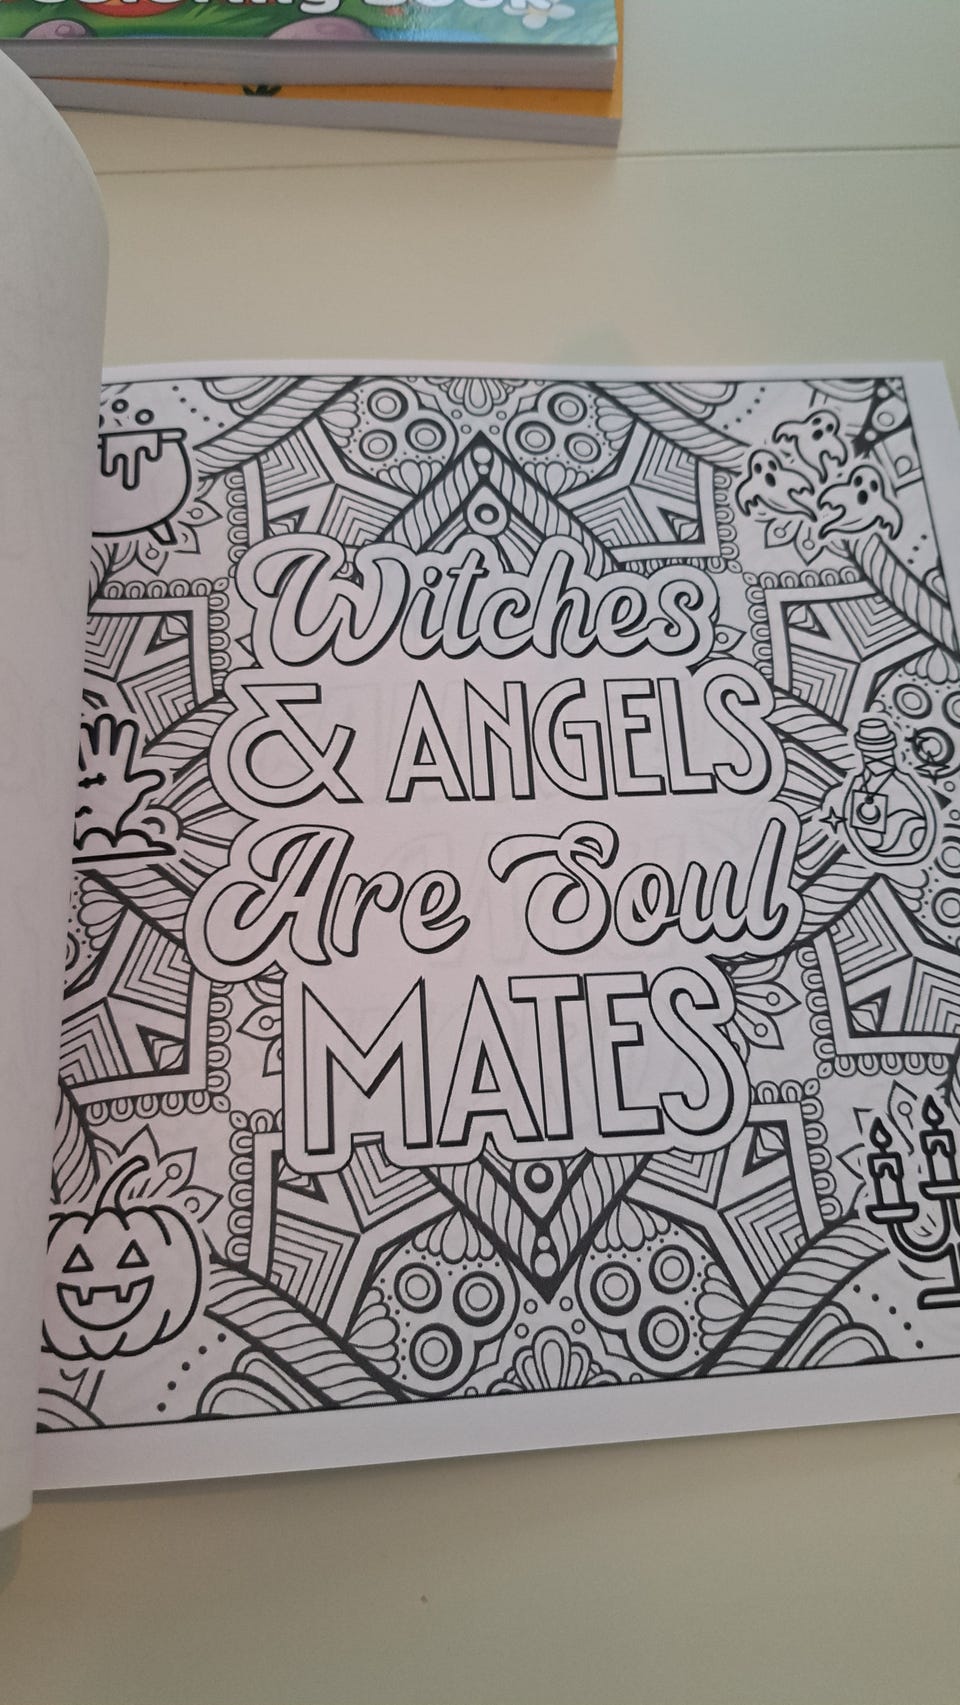 Coloring Book
Witches
& ANGELS
Are Soul
MATES